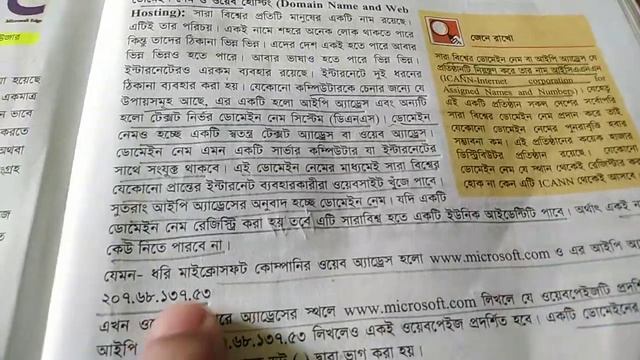 ডোমেইন নেম ও ওয়েব হোস্টিং (Domain Name and Web
Hosting): সারা বিশ্বের প্রতিটি মানুষের একটি নাম রয়েছে।
এটিই তার পরিচয়। একই নামে শহরে অনেক লোক থাকতে পারে
কিন্তু তাদের ঠিকানা ভিন্ন ভিন্ন। এদের দেশ একই হতে পারে আবার
ভিন্ন ভিন্নও হতে পারে। আবার ভাষাও হতে পারে ভিন্ন ভিন্ন।
ইন্টারনেটেরও এরকম ব্যবহার রয়েছে। ইন্টারনেটে দুই ধরনের
ঠিকানা ব্যবহার করা হয়। যেকোনো কম্পিউটারকে চেনার জন্যে যে
উপায়সমূহ আছে, এর একটি হলো আইপি অ্যাড্রেস এবং অন্যটি
হলো টেক্সট নির্ভর ডোমেইন নেম সিস্টেম (ডিএনএস)। ডোমেইন
নেমও হচ্ছে একটি স্বতন্ত্র টেক্সট অ্যাড্রেস বা ওয়েব অ্যাড্রেস।
ডোমেইন নেম এমন একটি সার্ভার কম্পিউটার যা ইন্টারনেটের
সাথে সংযুক্ত থাকবে। এই ডোমেইন নেমের মাধ্যমেই সারা বিশ্বের
যেকোনো প্রান্তের ইন্টারনেট ব্যবহারকারীরা ওয়েবসাইট খুঁজে পাবে।
সুতরাং আইপি অ্যাড্রেসের অনুবাদ হচ্ছে ডোমেইন নেম। যদি একটি
ডোমেইন নেম রেজিস্ট্রি করা হয় তবে এটি সারাবিশ্ব হতে একটি ইউনিক আইডেন্টিটি পাবে। অর্থাৎ একই
কেউ নিতে পারবে না।
যেমন- ধরি মাইক্রোসফট কোম্পানির ওয়েব অ্যাড্রেস হলো www.microsoft.com ও এর আইপি
২০৭.৬৮.১৩৭.৫৩
এখন অ্যাড্রেসের স্থলে www.microsoft.com লিখলে যে ওয়েবপেইজটি
আইপি .৬৮.১৩৭.৫৩ লিখলেও একই ওয়েবপেইজ প্রদর্শিত হবে। একটি ডোমেইনের
) দ্বারা ভাগ করা হয়।
জেনে রাখো
সারা বিশ্বের ডোমেইন নেম বা আইপি অ্যাড্রেস যে
প্রতিষ্ঠানটি নিয়ন্ত্রণ করে তার নাম আইসিএএনএন
(ICANN-Internet corporation for
Assigned Names and Numbers)। যেহেতু
এই একটি প্রতিষ্ঠান সকল দেশের সর্বোপরি
সারা বিশ্বের ডোমেইন নেম প্রদান করে তাই
যেকোনো ডোমেইন নেমের পুনরাবৃত্তি হবার
সম্ভাবনা কম। এই প্রতিষ্ঠানের কয়েক হাজার
ডিস্ট্রিবিউটর প্রতিষ্ঠান রয়েছে। যেকোনো
ডোমেইন নেম যে স্থান থেকেই রেজিস্টার করা
হোক না কেন এটি ICANN থেকেই আসবে।
Microsoft Edge
জার
য়া হয়েছে
একমাত্র
ন ভাবে
করতে
অথবা
সংগ্রহ